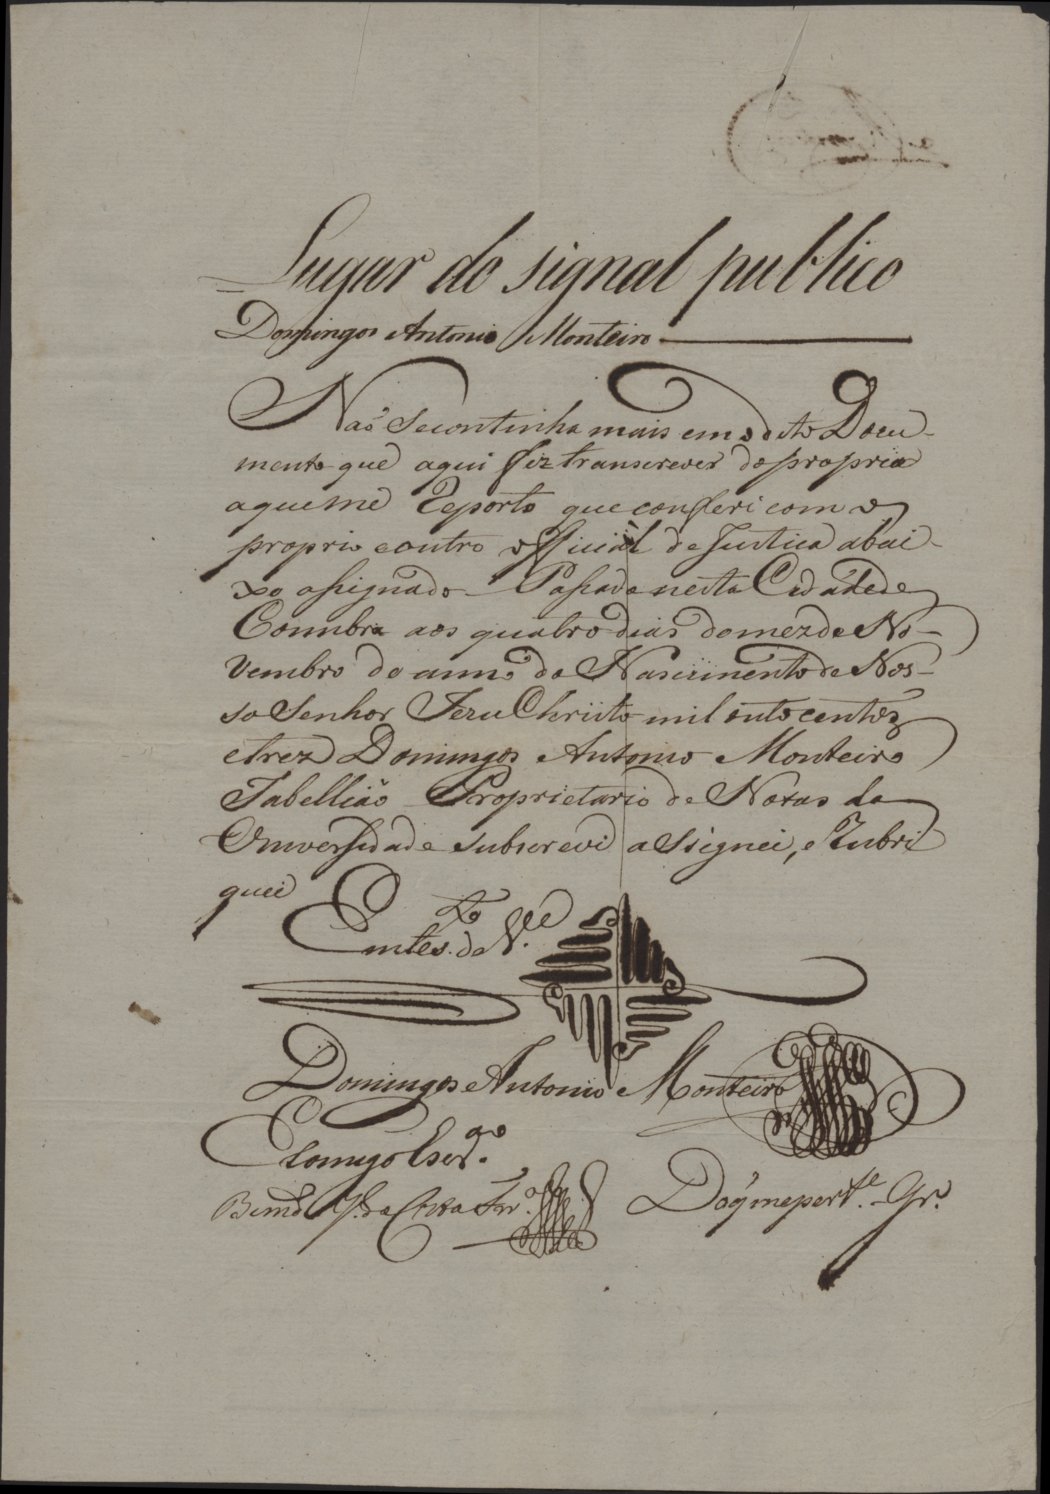 Lugar do signal publico
Domingos Antonio Monteiro
Naõ Secontinha mais emo dito Docu-
mento que aqui fiz transcrever do proprio
aqueme Reporto que conferi com o
proprio eoutro official de Justica abai-
xo assignado Passada nesta Cidade de
Coimbra aos quatro dias domez de No-
vembro do anno do Nascimento de Nos-
so Senhor Jezu Christo mil outo centos
etrez Domingos Antonio Monteiro
Tabelliaõ Proprietario de Notas da
Universidade subscrevi aSsignei, e Rubri
quei
Emtes.to de V.e
Domingos Antonio Monteiro
Comigo Escr.am